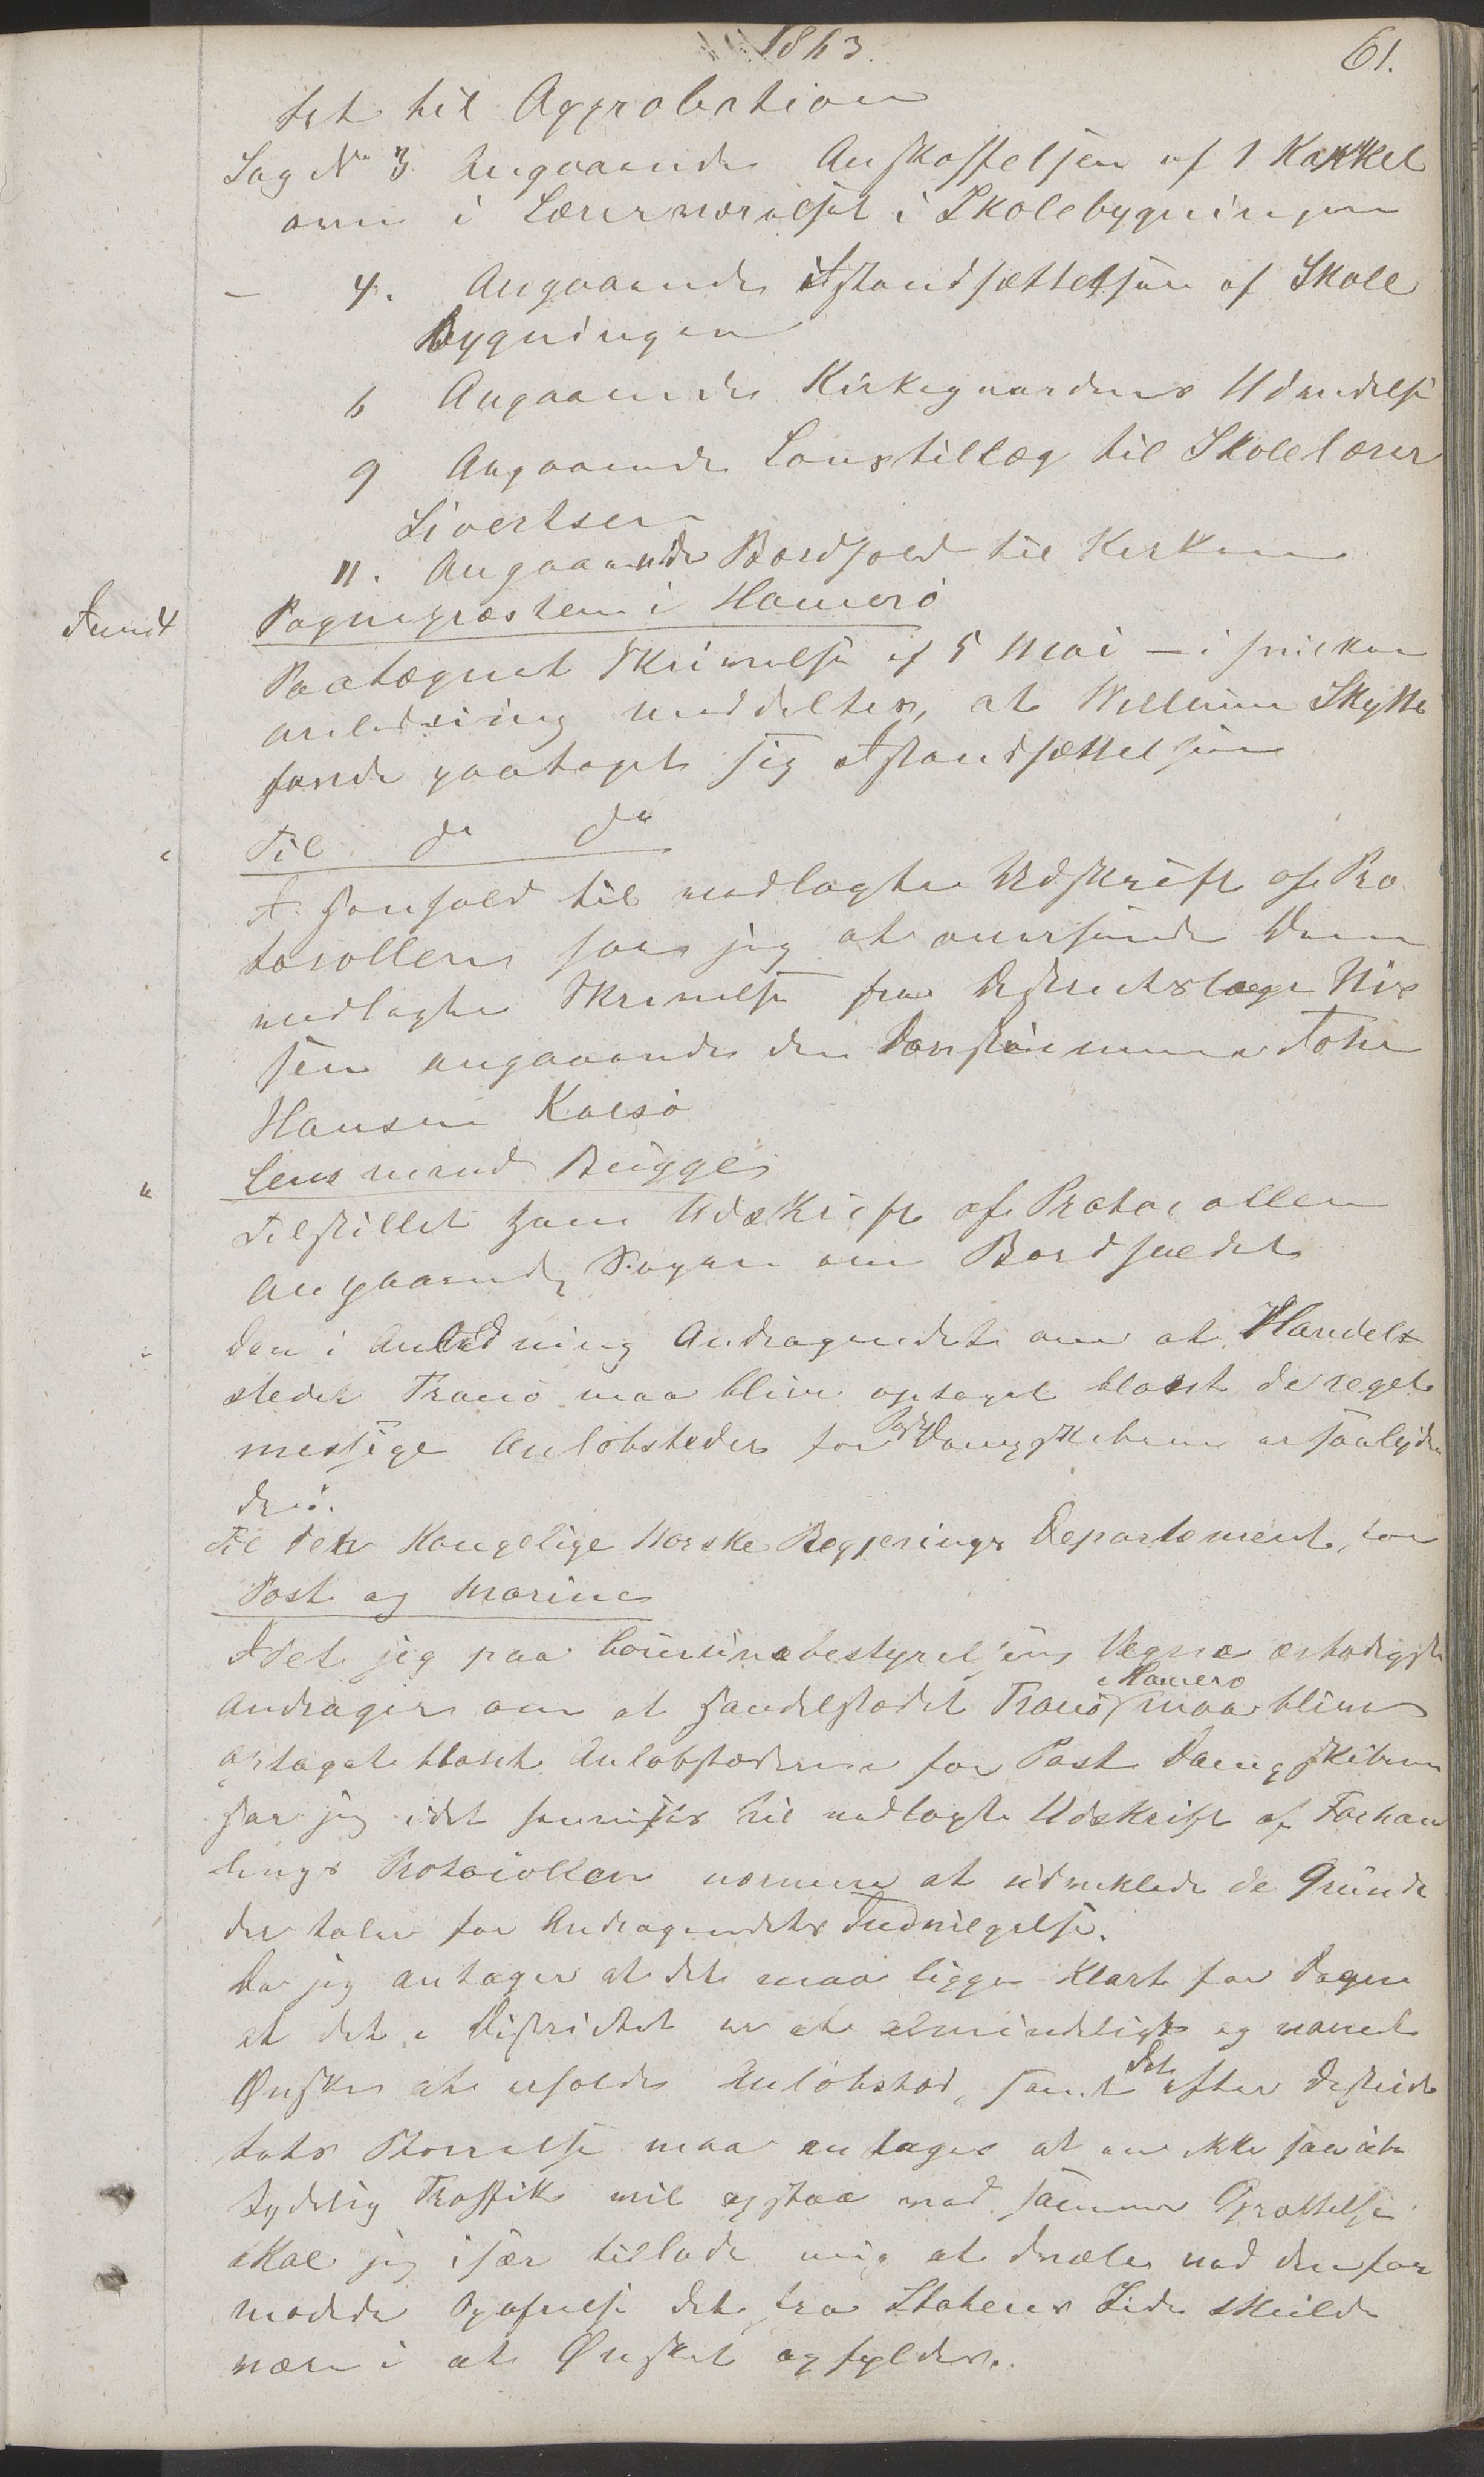 1863.
61.
tet til Approbation
Sag No 3 Angaaende Anskaffelsen af 1 Kakkel
ovn i Lærerværelset i Skolebygningen
- 4. Angaaende Istandsættelsen af Skole
Bygningen
6 Angaaende Kirkegaardens Udvidelse
9 Angaaende Lønstillæg til Skolelærer
Sivertsen
11. Angaaende Bordhold til Kirken
Sognepræsten i Hamerø
Paategnet Skrivelse af 5 Mai — i hvilken
anledning meddeltes, at Willum Skytte
havde paataget sig Istandsættelsen
Til do do
I henhold til vedlagte Udskrift af Pro
tocollen har jeg at oversende Dem
vedlagte Skrivelse fra Districtslæge Nis
sen angaaende den Døvstumme Tohr
Hansen Kalsø
Lensmand Brygge
Tilstillet ham Udskrift af Protocollen
angaaende Sagen om Bordholdet
Den i Anledning Andragendet om at Handels
stedet Tranø maa blive optaget blant de regel
messige Anløbsteder for Post Dampskibene er saalyden
de:
Til den Kongelige Norske Regjerings Departement for
Post og Marine
Idet jeg paa Communebestyrelsens Vegne ærbødigst
Andrager om at handelstedet Tranø i Hamerø maa blive
optaget blant Anløbstederne for Post Dampskibene
har jeg idet henvises til vedlagte Udskrift af Forhan
lings Protocollen nærmere at udvikle de Grunde
der taler for Andragendets Indvilgelse.
Da jeg antager at det maa ligge klart for Dagen
at det i Districtet er et almindeligt og næret
Ønske at erholde Anløbsted, samt det efter Distric
tets Størrelse maa antages at en ikke saa ube
tydelig Traffik vil opstaa ved samme Oprettelse
skal jeg især tillade mig at dvæle ved den for
modede Opofrelse det fra Statens Side skulde
være i at Ønsket opfyldes.